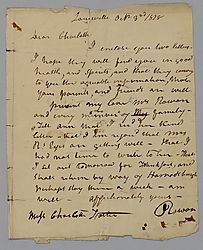 Louisville Oct 3rd 1828
Dear Charlotte
I enclose you two letters.
I hope they will find you in good
health, and spirits, and that they convey
to you the agreeable information, that
your parents and friends are well
Present my love Mrs Rowan
and every member of the family -
Tell Ann that I red her kind
letter - that I am rejoiced that Mrs
Rs Eyes are getting well - that I
had not time to write to her - that I
set out tomorrow for Frankfort, and
shall return by way of Harrodsburg
perhaps stay there a week - am
well - affectionately yours
J Rowan
Miss Charlotte